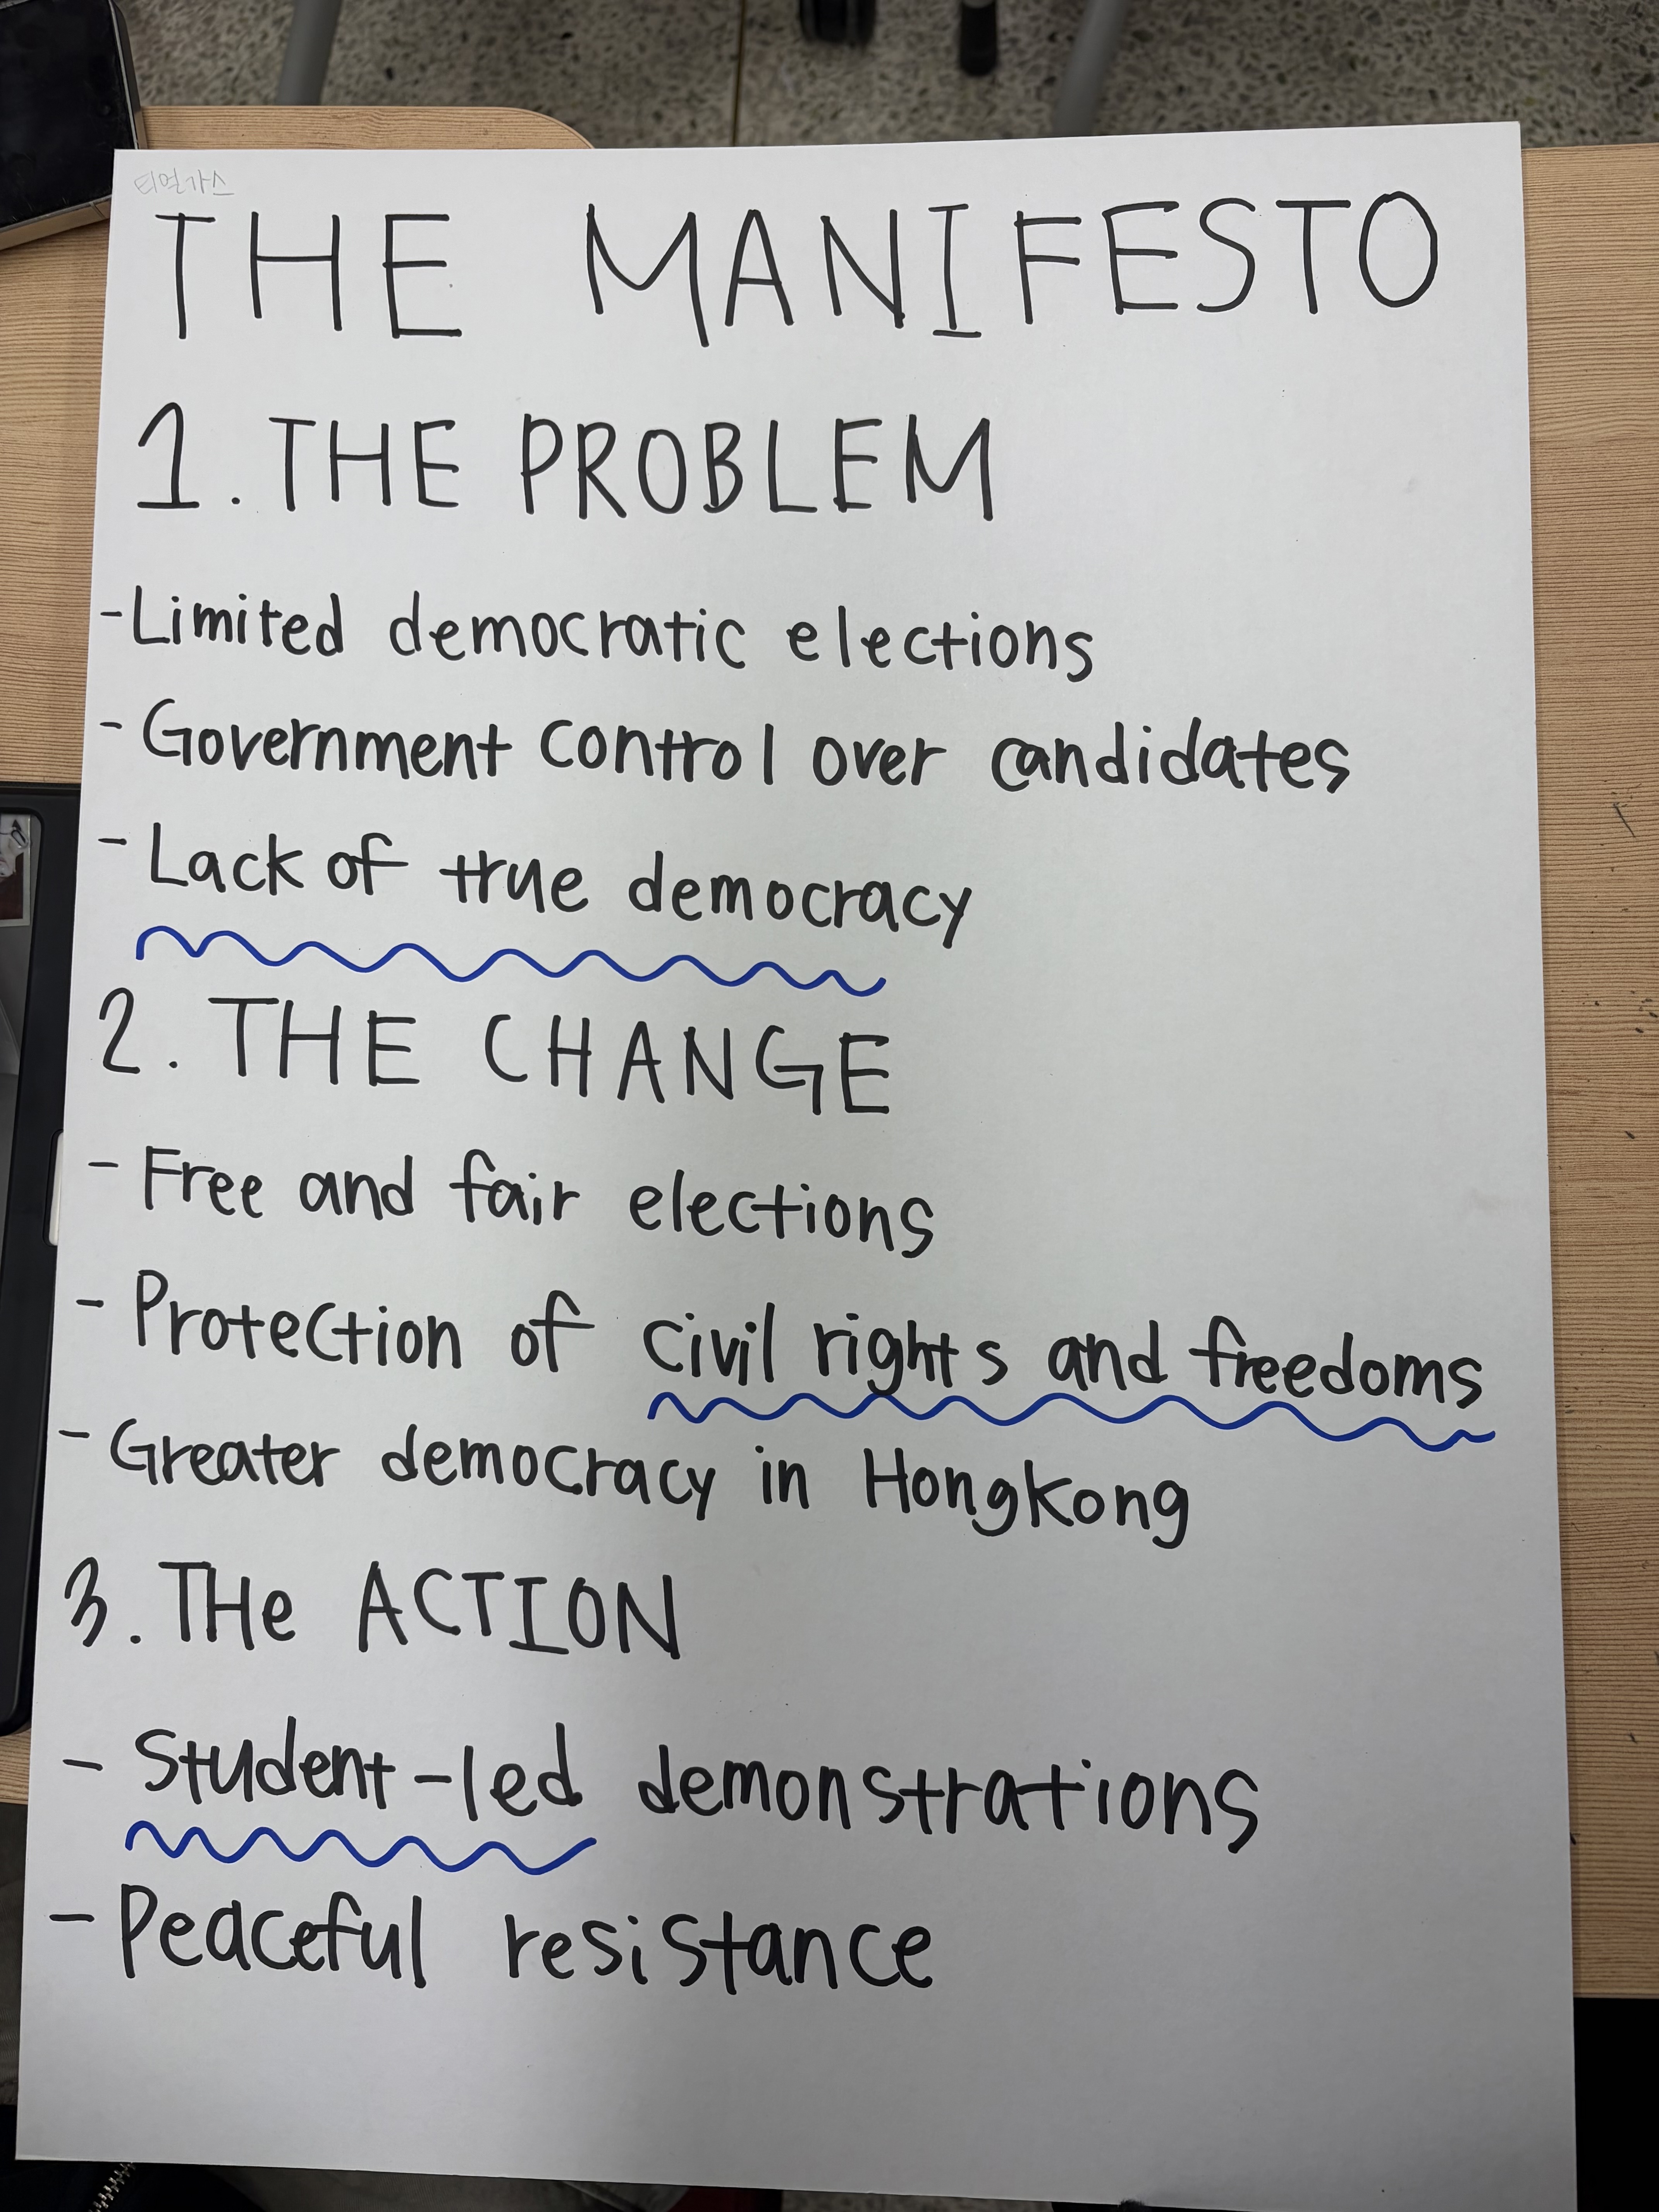 티얼가스
THE MANIFESTO
1. THE PROBLEM
-Limited democratic elections
- Government control over candidates
- Lack of true democracy
2. THE CHANGE
- Free and fair elections
- Protection of civil rights and freedoms
- Greater democracy in Hongkong
3. THe ACTION
- Student-led demonstrations
- Peaceful resistance